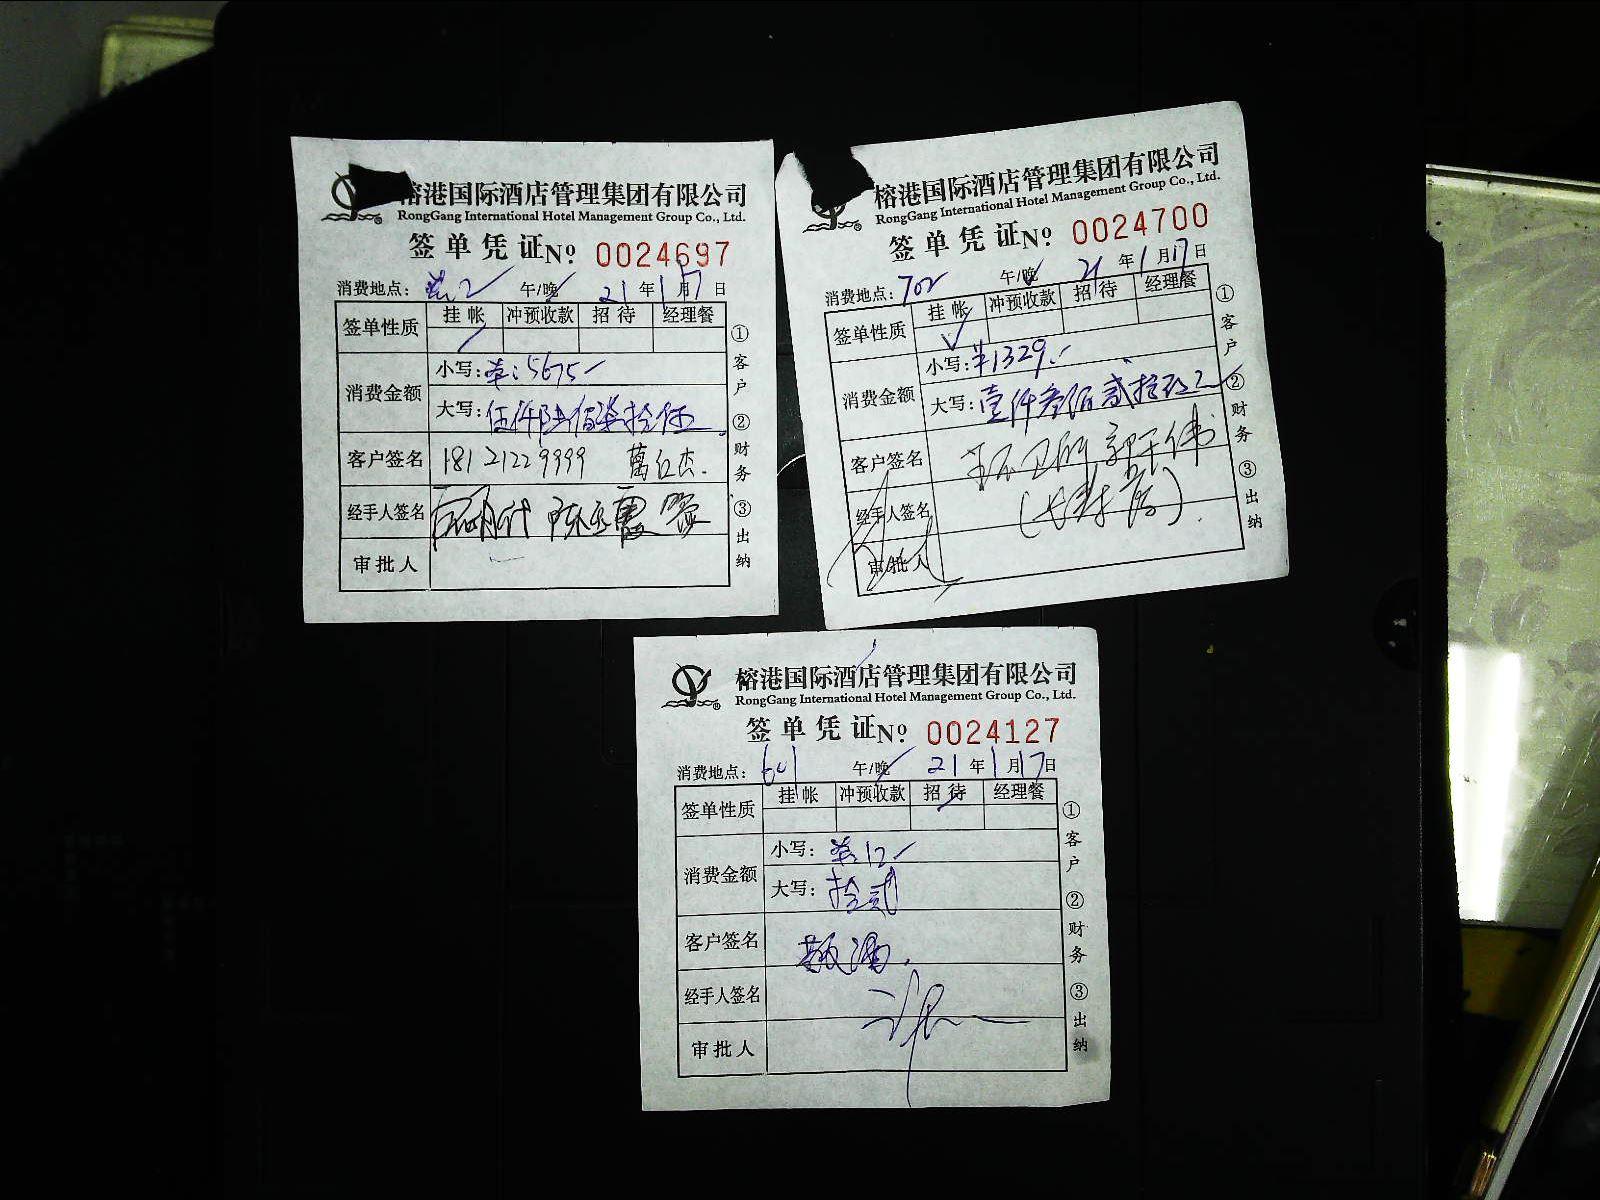 榕港国际酒店管理集团有限公司
RongGang International Hotel Management Group Co., Ltd.
签单凭证 No 0024697
消费地点: 午/晚 21年1月17日
签单性质 挂帐 冲预收款 招待 经理餐
消费金额
小写: 5675
大写: 伍仟陆佰柒拾伍
客户签名 18121229999
经手人签名
审批人
①客户 ②财务 ③出纳
榕港国际酒店管理集团有限公司
RongGang International Hotel Management Group Co., Ltd.
签单凭证 No 0024700
消费地点: 702 午/晚 21年1月17日
签单性质 挂帐 冲预收款 招待 经理餐
消费金额
小写: ¥1329
大写: 壹仟叁佰贰拾玖
客户签名
经手人签名
审批人
①客户 ②财务 ③出纳
榕港国际酒店管理集团有限公司
RongGang International Hotel Management Group Co., Ltd.
签单凭证 No 0024127
消费地点: 601 午/晚 21年1月17日
签单性质 挂帐 冲预收款 招待 经理餐
消费金额
小写: 12
大写: 拾贰
客户签名
经手人签名
审批人
①客户 ②财务 ③出纳